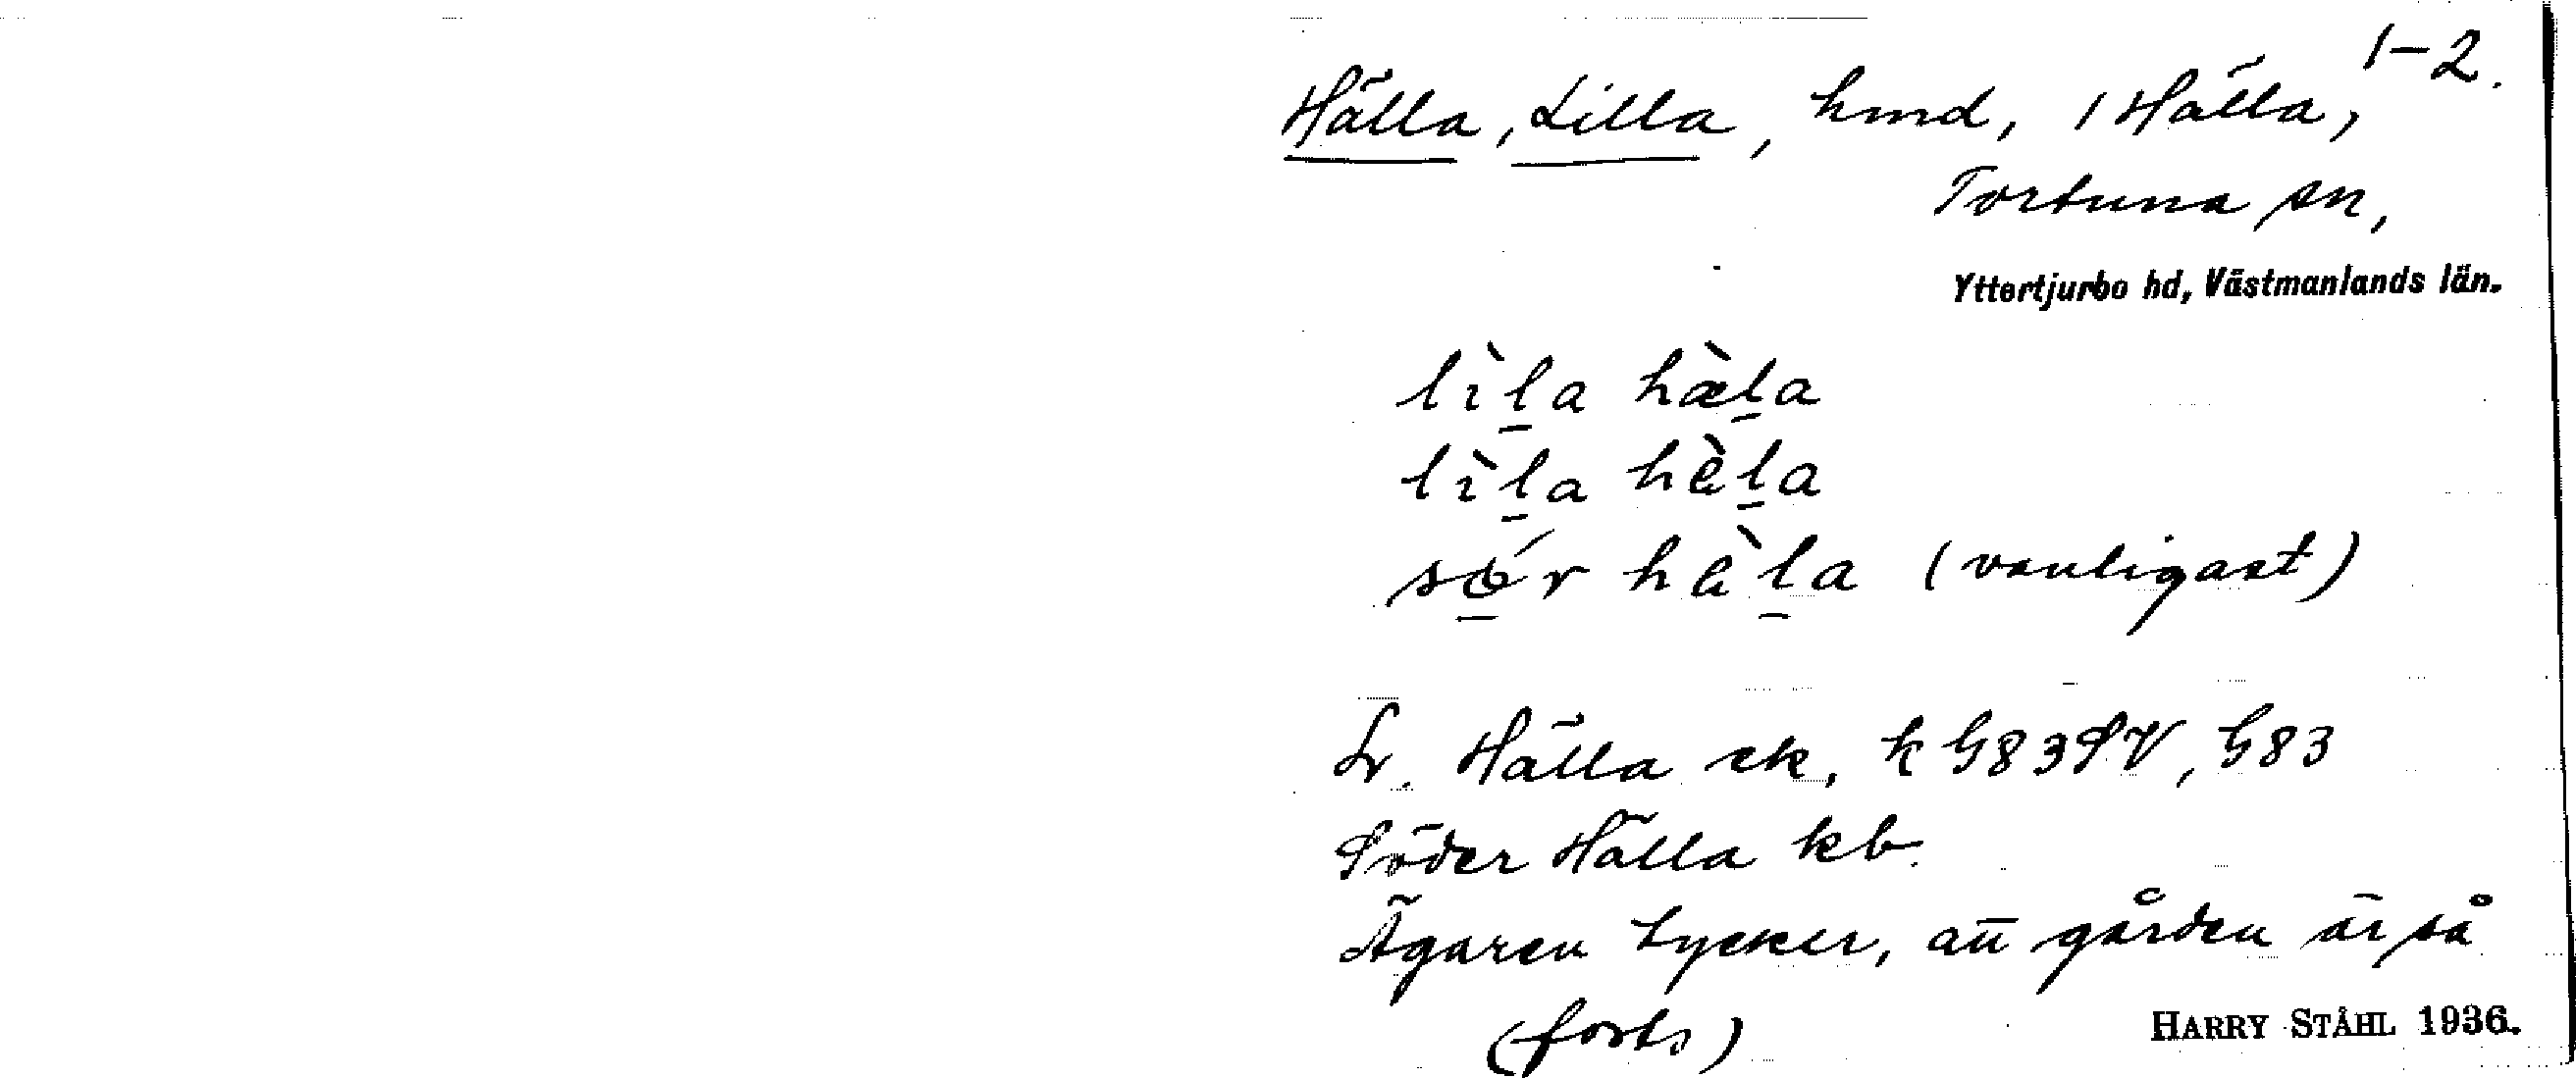 1-2.
Hälla, Lilla, hmd, i Hälla,
Tortuna sn,
Yttertjurbo hd, Västmanlands län.
lìl̠a hæ̀l̠a
lìl̠a hèl̠a
sǿ̠r hèl̠a (vanligast)
Hälla ek, k G83SV, G83
Söder Hälla kb
Ägaren tycker, att gården är så
(forts)
HARRY STÅHL 1936.